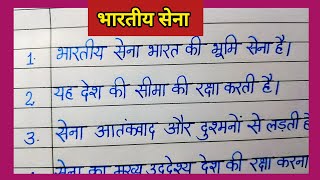 भारतीय सेना
1. भारतीय सेना भारत की भूमि सेना है।
2. यह देश की सीमा की रक्षा करती है।
3. सेना आतंकवाद और दुश्मनों से लड़ती है
सेना का मुख्य उद्देश्य देश की रक्षा करना